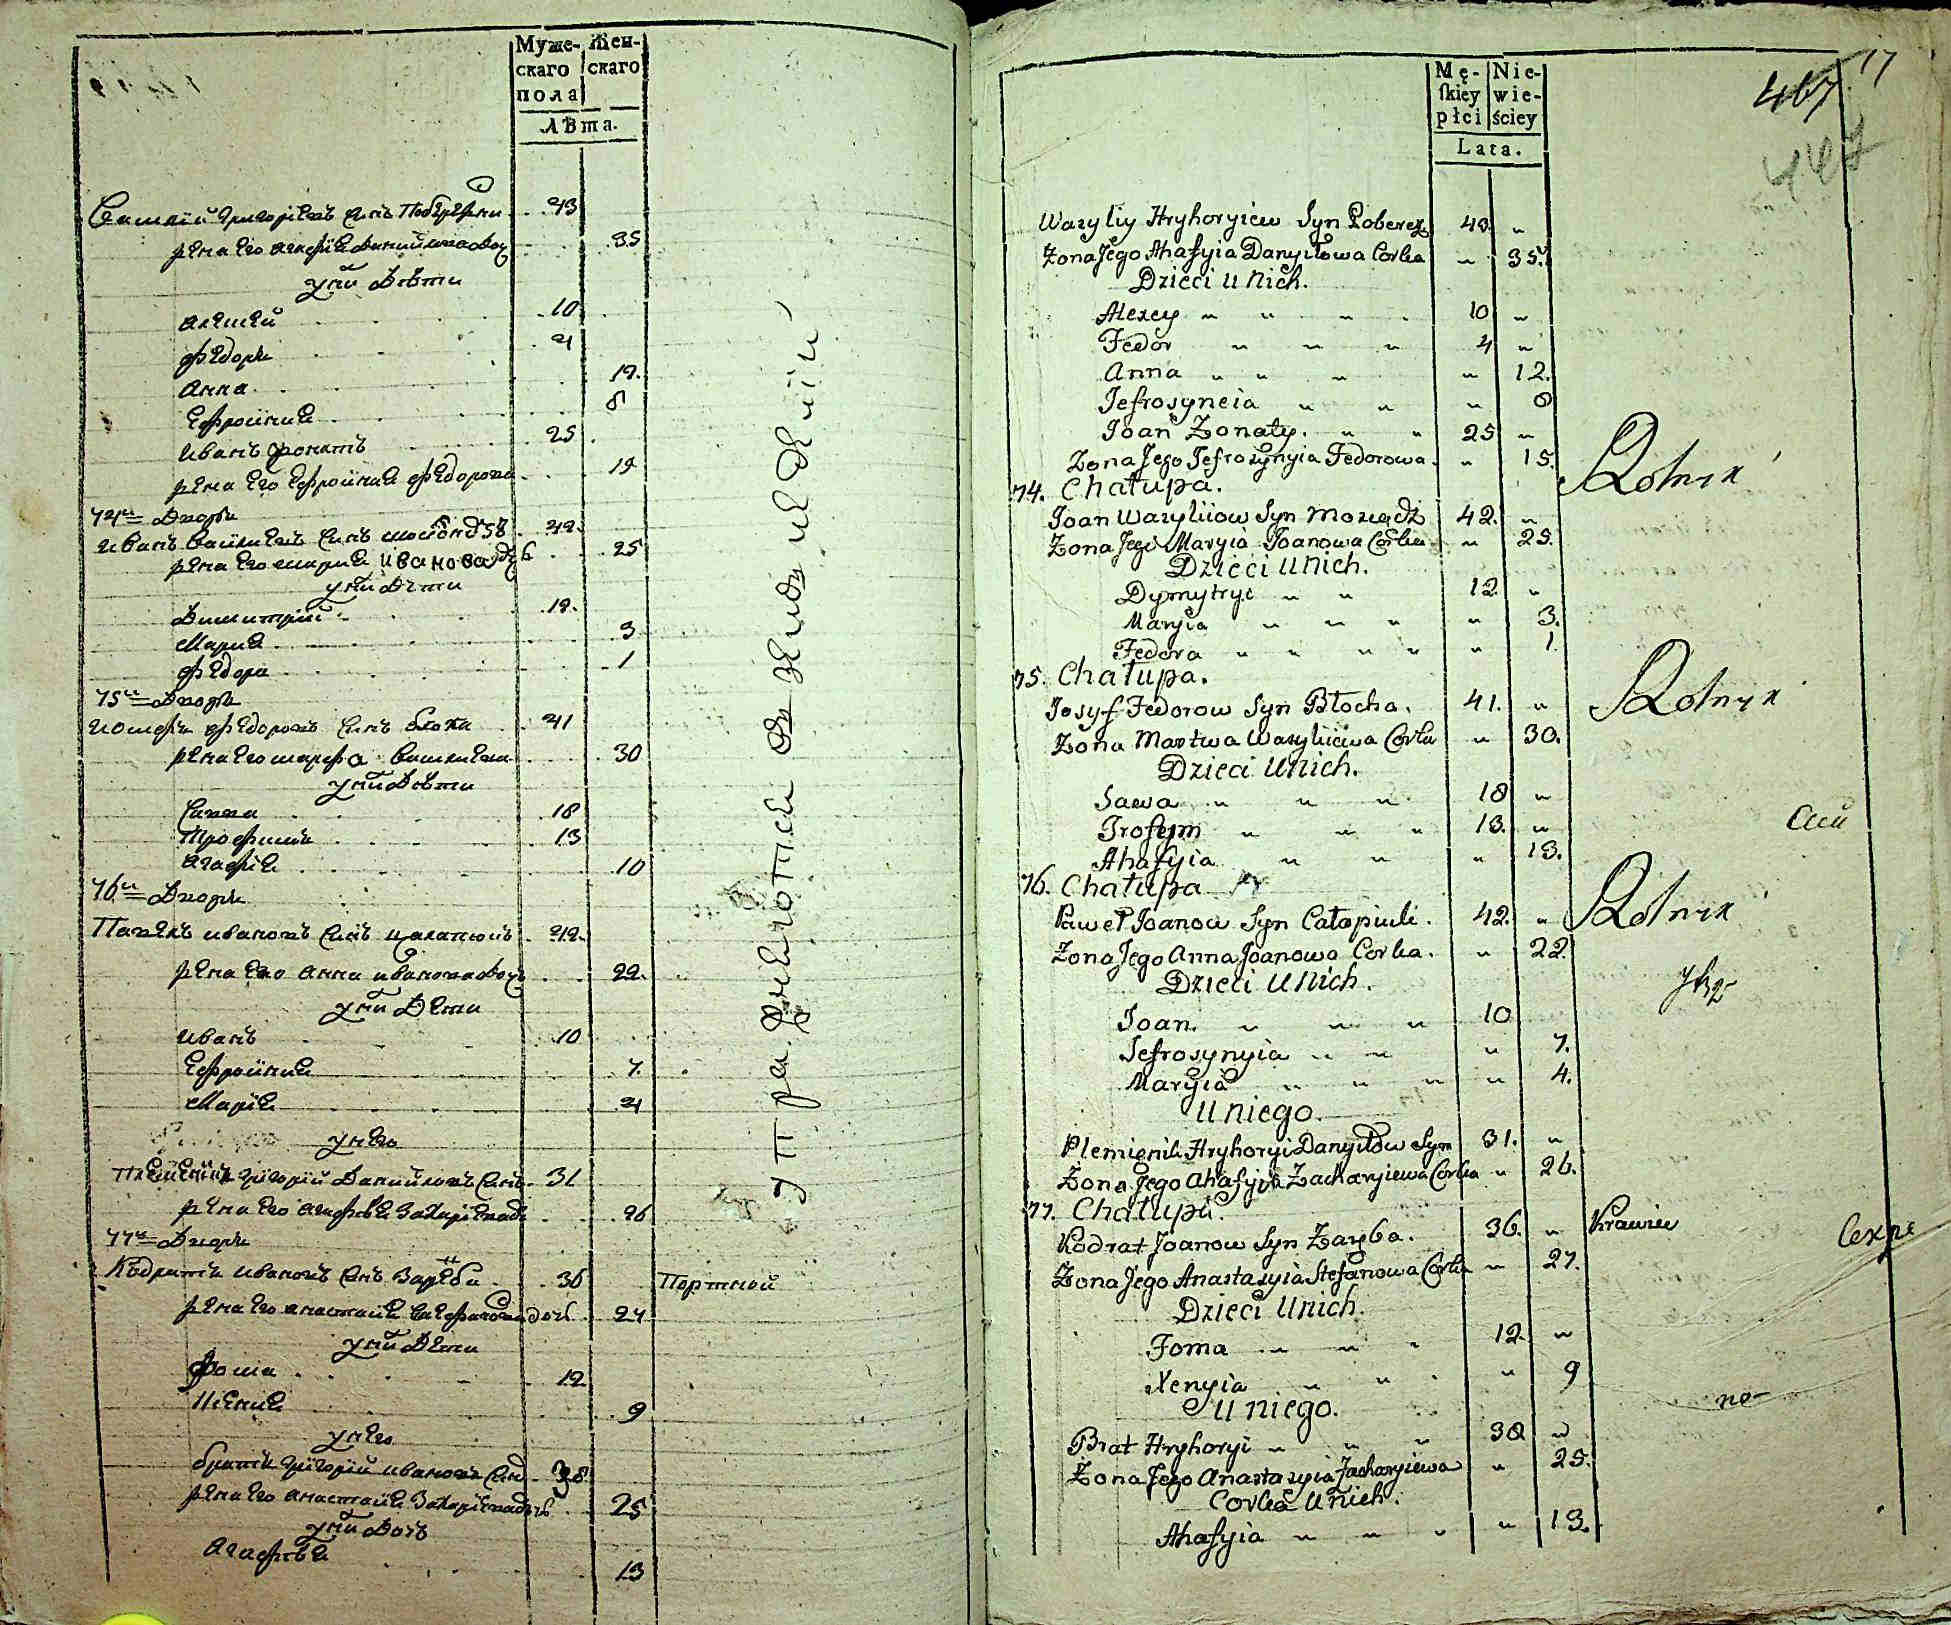 Муже-
скаго
пола
Жен-
скаго
Лѣта.
Василій Григоріевъ Сынъ Побережни 43
жена Его Агафіѧ Данийлова Доч 35
у них Дѣти
Алексей 10
Федоръ 4
Анна 12.
Ефросиния 8
Иванъ Жонатъ 25
жена Его Ефросиния Федорова 12
74й Дворъ
Иванъ Василиевъ Сынъ 42.
жена Его Мария Иванова доч 25
у них Дети
Димитрий 12.
Мария 3
Федора 1
75й Дворъ
Иосифъ Федоровъ Сынъ Блоха 41
жена Его Марфа Василиева 30
у них Дѣти
Савва 18
Трофимъ 13
Агафiя 10
76й Дворъ
Павелъ Ивановъ Сынъ Цалапюкъ 42.
жена Его Анна Иванова Доч 22.
у них Дети
Иванъ 10
Ефросиния 7.
Марiя 4
у него
Племеникъ Григорiй Данийловъ Сынъ 31
жена Его Агафiя Захарiева 26
77й Дворъ
Кодратъ Ивановъ Сынъ Зарѣба 36 Портной
жена Его Анастасия Стефанова доч 27
у них Дети
Фома 12
Ксения 9
у него
братъ Григорiй Ивановъ Сын 38
жена Его Анастасия Захарiева доч 25
у них Доч
Агафiя 13
Упражнюотся Въ земледелiи
467 17
467
Mę-
skiey
płci
Nie-
wie-
ściey
Lata.
Wasyliy Hryhoryiew Syn Poberez 43. "
Zona Jego Ahafyia Danyłowa Corka " 35.
Dzieci u Nich.
Alexey " " " 10 "
Fedor " " " 4 "
Anna " " " " 12.
Jefrosyneia " " " 8
Joan Zonaty. " " 25 "
Zona Jego Jefrosynyia Fedorowa. " 15.
74. Chałupa. Rolnik
Joan Wasyliiow Syn Mosiądz 42. "
Zona Jego Maryia Joanowa Corka " 25.
Dzieci u Nich.
Dymytryc " " 12. "
Maryia " " " " 3.
Fedora " " " " " 1.
75. Chałupa. Rolnik
Josyf Fedorow Syn Błocha. 41. "
Zona Martwa Wasyliiewa Corka " 30.
Dzieci u Nich.
Sawa " " " 18 "
Trofym " " " 13. "
Ahafyia " " " 13.
76. Chałupa Rolnik
Paweł Joanow Syn Całapiuk. 42. "
Zona Jego Anna Joanowa Corka. " 22.
Dzieci u Nich.
Joan. " " " 10
Jefrosynyia " " " 7.
Maryia " " " " 4.
u niego.
Plemienik Hryhoryi Danyłow Syn 31. "
Zona Jego Ahafyia Zacharyiewa Corka " 26.
77. Chałupa.
Kodrat Joanow Syn Zaręba. 36. " Krawiec
Zona Jego Anastasyia Stefanowa Corka " 27.
Dzieci u Nich.
Foma " " " 12. "
Xenyia " " " " 9
u niego.
Brat Hryhoryi " " " 38 "
Zona Jego Anastasyia Zacharyiewa " 25.
Corka u Nich.
Ahafyia " " " " 13.